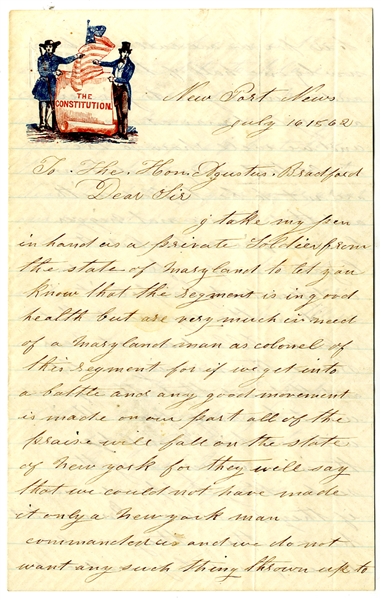 THE
CONSTITUTION
New Port News
July 16 1862
To The Hon. Agustus. Bradford
Dear Sir
I take my pen
in hand as a private Soldier from
the state of Maryland to let you
know that the regment is in good
health but are very much in need
of a Maryland man as colonel of
this regment for if we get into
a battle and any good movement
is made on our part all of the
praise will fall on the state
of New york for they will say
that we could not have made
it only a New york man
commanded us and we do not
want any such thing thrown up to